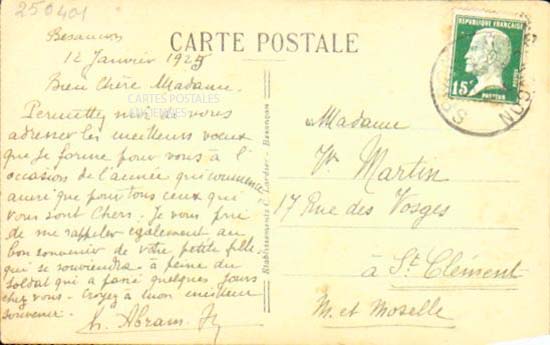 250401
CARTE POSTALE
Besançon
12 Janvier 1925
Bien Chère Madame.
Permettez moi de vous
adresser les meilleurs voeux
que je forme pour vous à l'
occasion de l'année qui commence
ainsi que pour tous ceux qui
vous sont chers. Je vous prie
de me rappeler également au
bon souvenir de votre petite fille
qui se souviendra à peine du
soldat qui a passé quelques jours
chez vous. Croyez à mon meilleur
souvenir.
CARTES POSTALES
ANCIENNES
Etablissements C. Lardier - Besançon
REPUBLIQUE FRANÇAISE
15c
POSTES
PASTEUR
Madame
Ve Martin
17 Rue des Vosges
à St. Clément
M. et Moselle